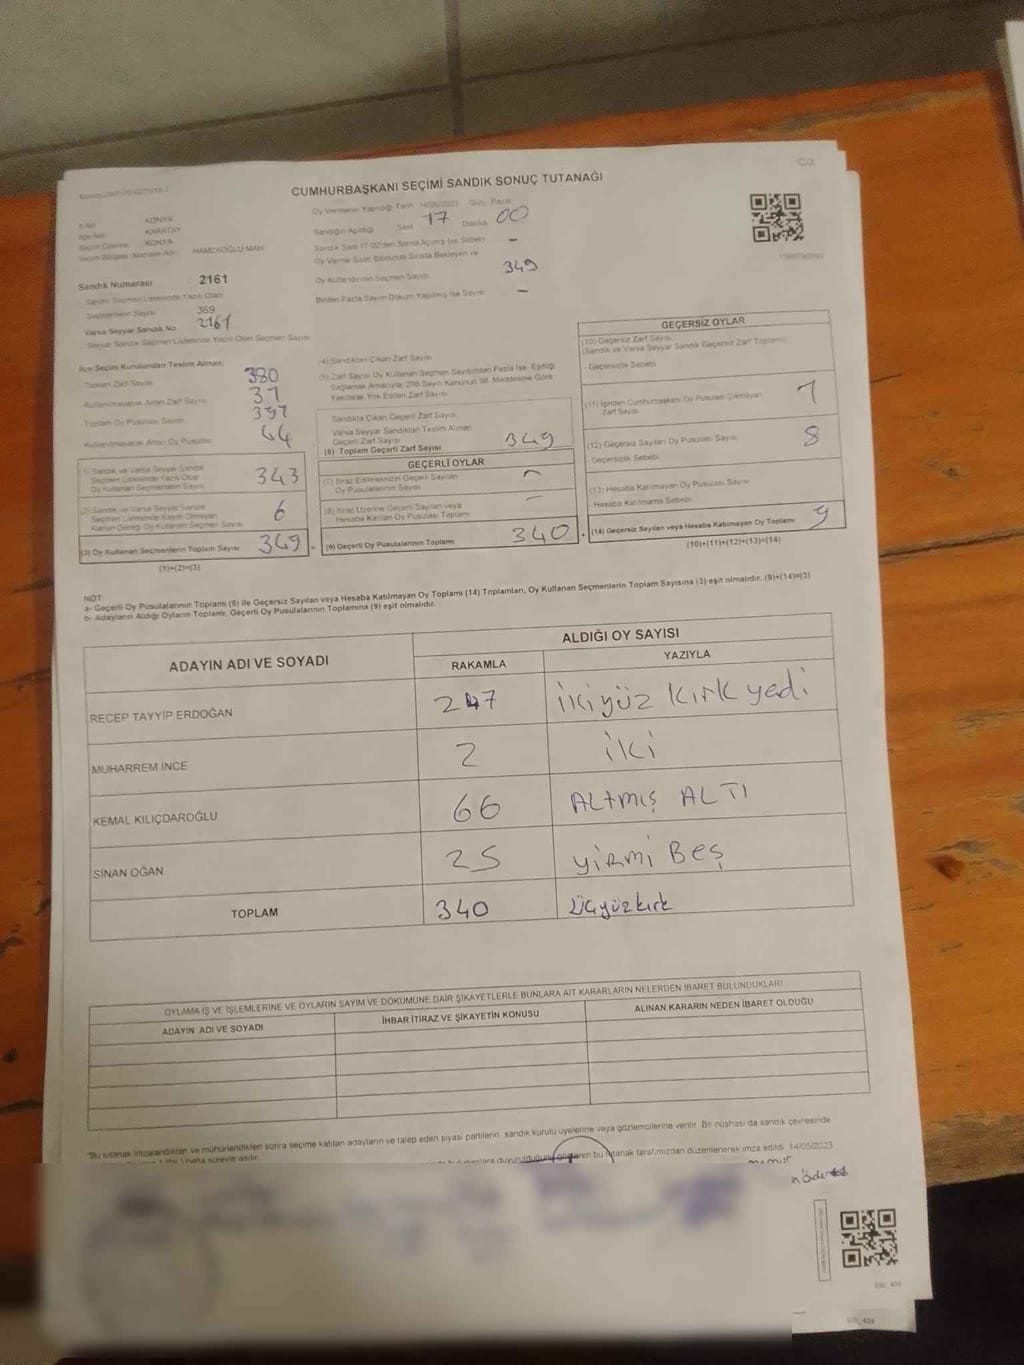 C/2
CUMHURBAŞKANI SEÇİMİ SANDIK SONUÇ TUTANAĞI
İl Adı KONYA
İlçe Adı KARATAY
Seçim Çevresi KONYA
Seçim Bölgesi (Mahalle Adı) HAMZAOĞLU MAH.
Sandık Numarası 2161
Sandık Seçmen Listesinde Yazılı Olan
Seçmenlerin Sayısı 369
Varsa Seyyar Sandık No 2161
Seyyar Sandık Seçmen Listesinde Yazılı Olan Seçmen Sayısı
Oy Vermenin Yapıldığı Tarih 14/05/2023 Gün Pazar
Sandığın Açıldığı Saat 17 Dakika 00
Sandık Saat 17:00'den Sonra Açılmış İse Sebebi -
Oy Verme Saati Bitiminde Sırada Bekleyen ve
Oy Kullandırılan Seçmen Sayısı 349
Birden Fazla Sayım Döküm Yapılmış İse Sayısı -
İlçe Seçim Kurulundan Teslim Alınan;
Toplam Zarf Sayısı 380
Kullanılmayarak Artan Zarf Sayısı 31
Toplam Oy Pusulası Sayısı
Kullanılmayarak Artan Oy Pusulası 44
(1) Sandık ve Varsa Seyyar Sandık
Seçmen Listesinde Yazılı Olup
Oy Kullanan Seçmenlerin Sayısı 343
(2) Sandık ve Varsa Seyyar Sandık
Seçmen Listesinde Kayıtlı Olmayan
Kanun Gereği Oy Kullanan Seçmen Sayısı 6
(3) Oy Kullanan Seçmenlerin Toplam Sayısı 349
(1)+(2)=(3)
(4) Sandıktan Çıkan Zarf Sayısı
(5) Zarf Sayısı Oy Kullanan Seçmen Sayısından Fazla İse, Eşitliği
Sağlamak Amacıyla, 298 Sayılı Kanunun 98. Maddesine Göre
Yakılarak Yok Edilen Zarf Sayısı
Sandıkta Çıkan Geçerli Zarf Sayısı
Varsa Seyyar Sandıktan Teslim Alınan
Geçerli Zarf Sayısı
(6) Toplam Geçerli Zarf Sayısı 349
GEÇERLİ OYLAR
(7) İtiraz Edilmeksizin Geçerli Sayılan
Oy Pusulalarının Sayısı -
(8) İtiraz Üzerine Geçerli Sayılan veya
Hesaba Katılan Oy Pusulası Toplamı -
(9) Geçerli Oy Pusulalarının Toplamı 340
GEÇERSİZ OYLAR
(10) Geçersiz Zarf Sayısı
(Sandık ve Varsa Seyyar Sandık Geçersiz Zarf Toplamı)
Geçersizlik Sebebi:
(11) İçinden Cumhurbaşkanı Oy Pusulası Çıkmayan
Zarf Sayısı 1
(12) Geçersiz Sayılan Oy Pusulası Sayısı 8
Geçersizlik Sebebi:
(13) Hesaba Katılmayan Oy Pusulası Sayısı
Hesaba Katılmama Sebebi:
(14) Geçersiz Sayılan veya Hesaba Katılmayan Oy Toplamı 9
(10)+(11)+(12)+(13)=(14)
NOT:
a- Geçerli Oy Pusulalarının Toplamı (9) ile Geçersiz Sayılan veya Hesaba Katılmayan Oy Toplamı (14) Toplamları, Oy Kullanan Seçmenlerin Toplam Sayısına (3) eşit olmalıdır. (9)+(14)=(3)
b- Adayların Aldığı Oyların Toplamı, Geçerli Oy Pusulalarının Toplamına (9) eşit olmalıdır.
ADAYIN ADI VE SOYADI ALDIĞI OY SAYISI
RAKAMLA YAZIYLA
RECEP TAYYİP ERDOĞAN 247 İkiyüz kırk yedi
MUHARREM İNCE 2 iki
KEMAL KILIÇDAROĞLU 66 ALTMIŞ ALTI
SİNAN OĞAN 25 yirmi Beş
TOPLAM 340 üçyüzkırk
OYLAMA İŞ VE İŞLEMLERİNE VE OYLARIN SAYIM VE DÖKÜMÜNE DAİR ŞİKAYETLERLE BUNLARA AİT KARARLARIN NELERDEN İBARET BULUNDUKLARI
ADAYIN ADI VE SOYADI İHBAR İTİRAZ VE ŞİKAYETİN KONUSU ALINAN KARARIN NEDEN İBARET OLDUĞU
"Bu tutanak imzalandıktan ve mühürlendikten sonra seçime katılan adayların ve talep eden siyasi partilerin, sandık kurulu üyelerine veya gözlemcilerine verilir. Bir nüshası da sandık çevresinde
bu tutanak tarafımızdan düzenlenerek imza edildi. 14/05/2023